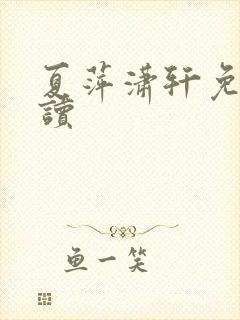 夏萍潇轩免
读
鱼一笑